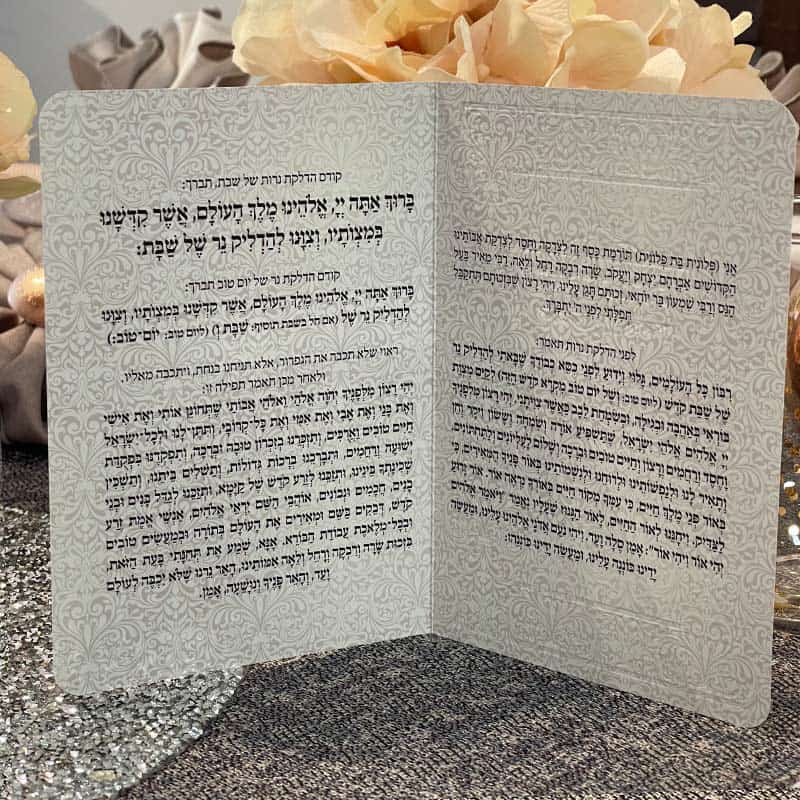 אֲנִי (פְּלוֹנִית בַּת פְּלוֹנִית) תּוֹרֶמֶת כֶּסֶף זֶה לִצְדָקָה וָחֶסֶד לְצִדְקַת אֲבוֹתֵינוּ
הַקְּדוֹשִׁים אַבְרָהָם יִצְחָק וְיַעֲקֹב, שָׂרָה רִבְקָה רָחֵל וְלֵאָה, רַבִּי מֵאִיר בַּעַל
הַנֵּס וְרַבִּי שִׁמְעוֹן בַּר יוֹחַאי, זְכוּתָם תָּגֵן עָלֵינוּ. וִיהִי רָצוֹן שֶׁבִּזְכוּתָם תִּתְקַבֵּל
תְּפִלָּתִי לִפְנֵי ה' יִתְבָּרַךְ.
לפני הדלקת נרות תאמר:
רִבּוֹן כָּל הָעוֹלָמִים, גָּלוּי וְיָדוּעַ לִפְנֵי כִּסֵּא כְבוֹדֶךָ שֶׁבָּאתִי לְהַדְלִיק נֵר
שֶׁל שַׁבַּת קֹדֶשׁ (ליום טוב: וְשֶׁל יוֹם טוֹב מִקְרָא קֹדֶשׁ הַזֶּה) לְקַיֵּם מִצְוַת
בּוֹרְאִי בְּאַהֲבָה וּבְגִילָה, וּבְשִׂמְחַת לֵבָב כַּאֲשֶׁר צִוִּיתַנִי, יְהִי רָצוֹן מִלְּפָנֶיךָ
יְיָ אֱלֹהַי אֱלֹהֵי יִשְׂרָאֵל, שֶׁתַּשְׁפִּיעַ אוֹרָה וְשִׂמְחָה וְשָׂשׂוֹן וִיקָר וְחֵן
וָחֶסֶד וְרַחֲמִים וְרָצוֹן וְחַיִּים טוֹבִים וּבְרָכָה וְשָׁלוֹם לָעֶלְיוֹנִים וְלַתַּחְתּוֹנִים,
וְתָאִיר לָנוּ וּלְנַפְשׁוֹתֵינוּ וּלְרוּחֵנוּ וּלְנִשְׁמוֹתֵינוּ בְּאוֹר פָּנֶיךָ הַמְּאִירִים, כִּי
בְּאוֹר פְּנֵי מֶלֶךְ חַיִּים, כִּי עִמְּךָ מְקוֹר חַיִּים בְּאוֹרְךָ נִרְאֶה אוֹר, אוֹר זָרֻעַ
לַצַּדִּיק, וְיִחַנֵּנוּ לְאוֹר הַחַיִּים, לָאוֹר הַגָּנוּז שֶׁעָלָיו נֶאֱמַר "וַיֹּאמֶר אֱלֹהִים
יְהִי אוֹר וַיְהִי אוֹר": אָמֵן סֶלָה וָעֶד. וִיהִי נֹעַם אֲדֹנָי אֱלֹהֵינוּ עָלֵינוּ, וּמַעֲשֵׂה
יָדֵינוּ כּוֹנְנָה עָלֵינוּ, וּמַעֲשֵׂה יָדֵינוּ כּוֹנְנֵהוּ:
קודם הדלקת נרות של שבת, תברך:
בָּרוּךְ אַתָּה יְיָ, אֱלֹהֵינוּ מֶלֶךְ הָעוֹלָם, אֲשֶׁר קִדְּשָׁנוּ
בְּמִצְוֹתָיו, וְצִוָּנוּ לְהַדְלִיק נֵר שֶׁל שַׁבָּת:
קודם הדלקת נר של יום טוב תברך:
בָּרוּךְ אַתָּה יְיָ, אֱלֹהֵינוּ מֶלֶךְ הָעוֹלָם, אֲשֶׁר קִדְּשָׁנוּ בְּמִצְוֹתָיו, וְצִוָּנוּ
לְהַדְלִיק נֵר שֶׁל (אם חל בשבת תוסיף: שַׁבָּת וְ) (ליום טוב: יוֹם־טוֹב:)
ראוי שלא תכבה את הגפרור, אלא תניחנו בנחת, ויתכבה מאליו.
ולאחר מכן תאמר תפילה זו:
יְהִי רָצוֹן מִלְּפָנֶיךָ יְהֹוָה אֱלֹהַי וֵאלֹהֵי אֲבוֹתַי שֶׁתְּחוֹנֵן אוֹתִי וְאֶת אִישִׁי
וְאֶת בָּנַי וְאֶת אָבִי וְאֶת אִמִּי וְאֶת כָּל־קְרוֹבַי, וְתִתֶּן־לָנוּ וּלְכָל־יִשְׂרָאֵל
חַיִּים טוֹבִים וַאֲרֻכִּים, וְתִזְכְּרֵנוּ בְזִכְרוֹן טוֹבָה וּבְרָכָה, וְתִפְקְדֵנוּ בִּפְקֻדַּת
יְשׁוּעָה וְרַחֲמִים, וּתְבָרְכֵנוּ בְרָכוֹת גְּדוֹלוֹת, וְתַשְׁלִים בֵּיתֵנוּ, וְתַשְׁכִּין
שְׁכִינָתְךָ בֵּינֵינוּ, וּתְזַכֵּנוּ לְזֶרַע קֹדֶשׁ שֶׁל קַיָּמָא, וּתְזַכֵּנוּ לְגַדֵּל בָּנִים וּבְנֵי
בָנִים, חֲכָמִים וּנְבוֹנִים, אוֹהֲבֵי הַשֵּׁם יִרְאֵי אֱלֹהִים, אַנְשֵׁי אֱמֶת זֶרַע
קֹדֶשׁ, דְּבֵקִים בַּשֵּׁם וּמְאִירִים אֶת הָעוֹלָם בַּתּוֹרָה וּבְמַעֲשִׂים טוֹבִים
וּבְכָל־מְלֶאכֶת עֲבוֹדַת הַבּוֹרֵא. אָנָּא, שְׁמַע אֶת תְּחִנָּתִי בָּעֵת הַזֹּאת,
בִּזְכוּת שָׂרָה וְרִבְקָה וְרָחֵל וְלֵאָה אִמּוֹתֵינוּ, הָאֵר נֵרֵנוּ שֶׁלֹּא יִכְבֶּה לְעוֹלָם
וָעֶד, וְהָאֵר פָּנֶיךָ וְנִוָּשֵׁעָה, אָמֵן.